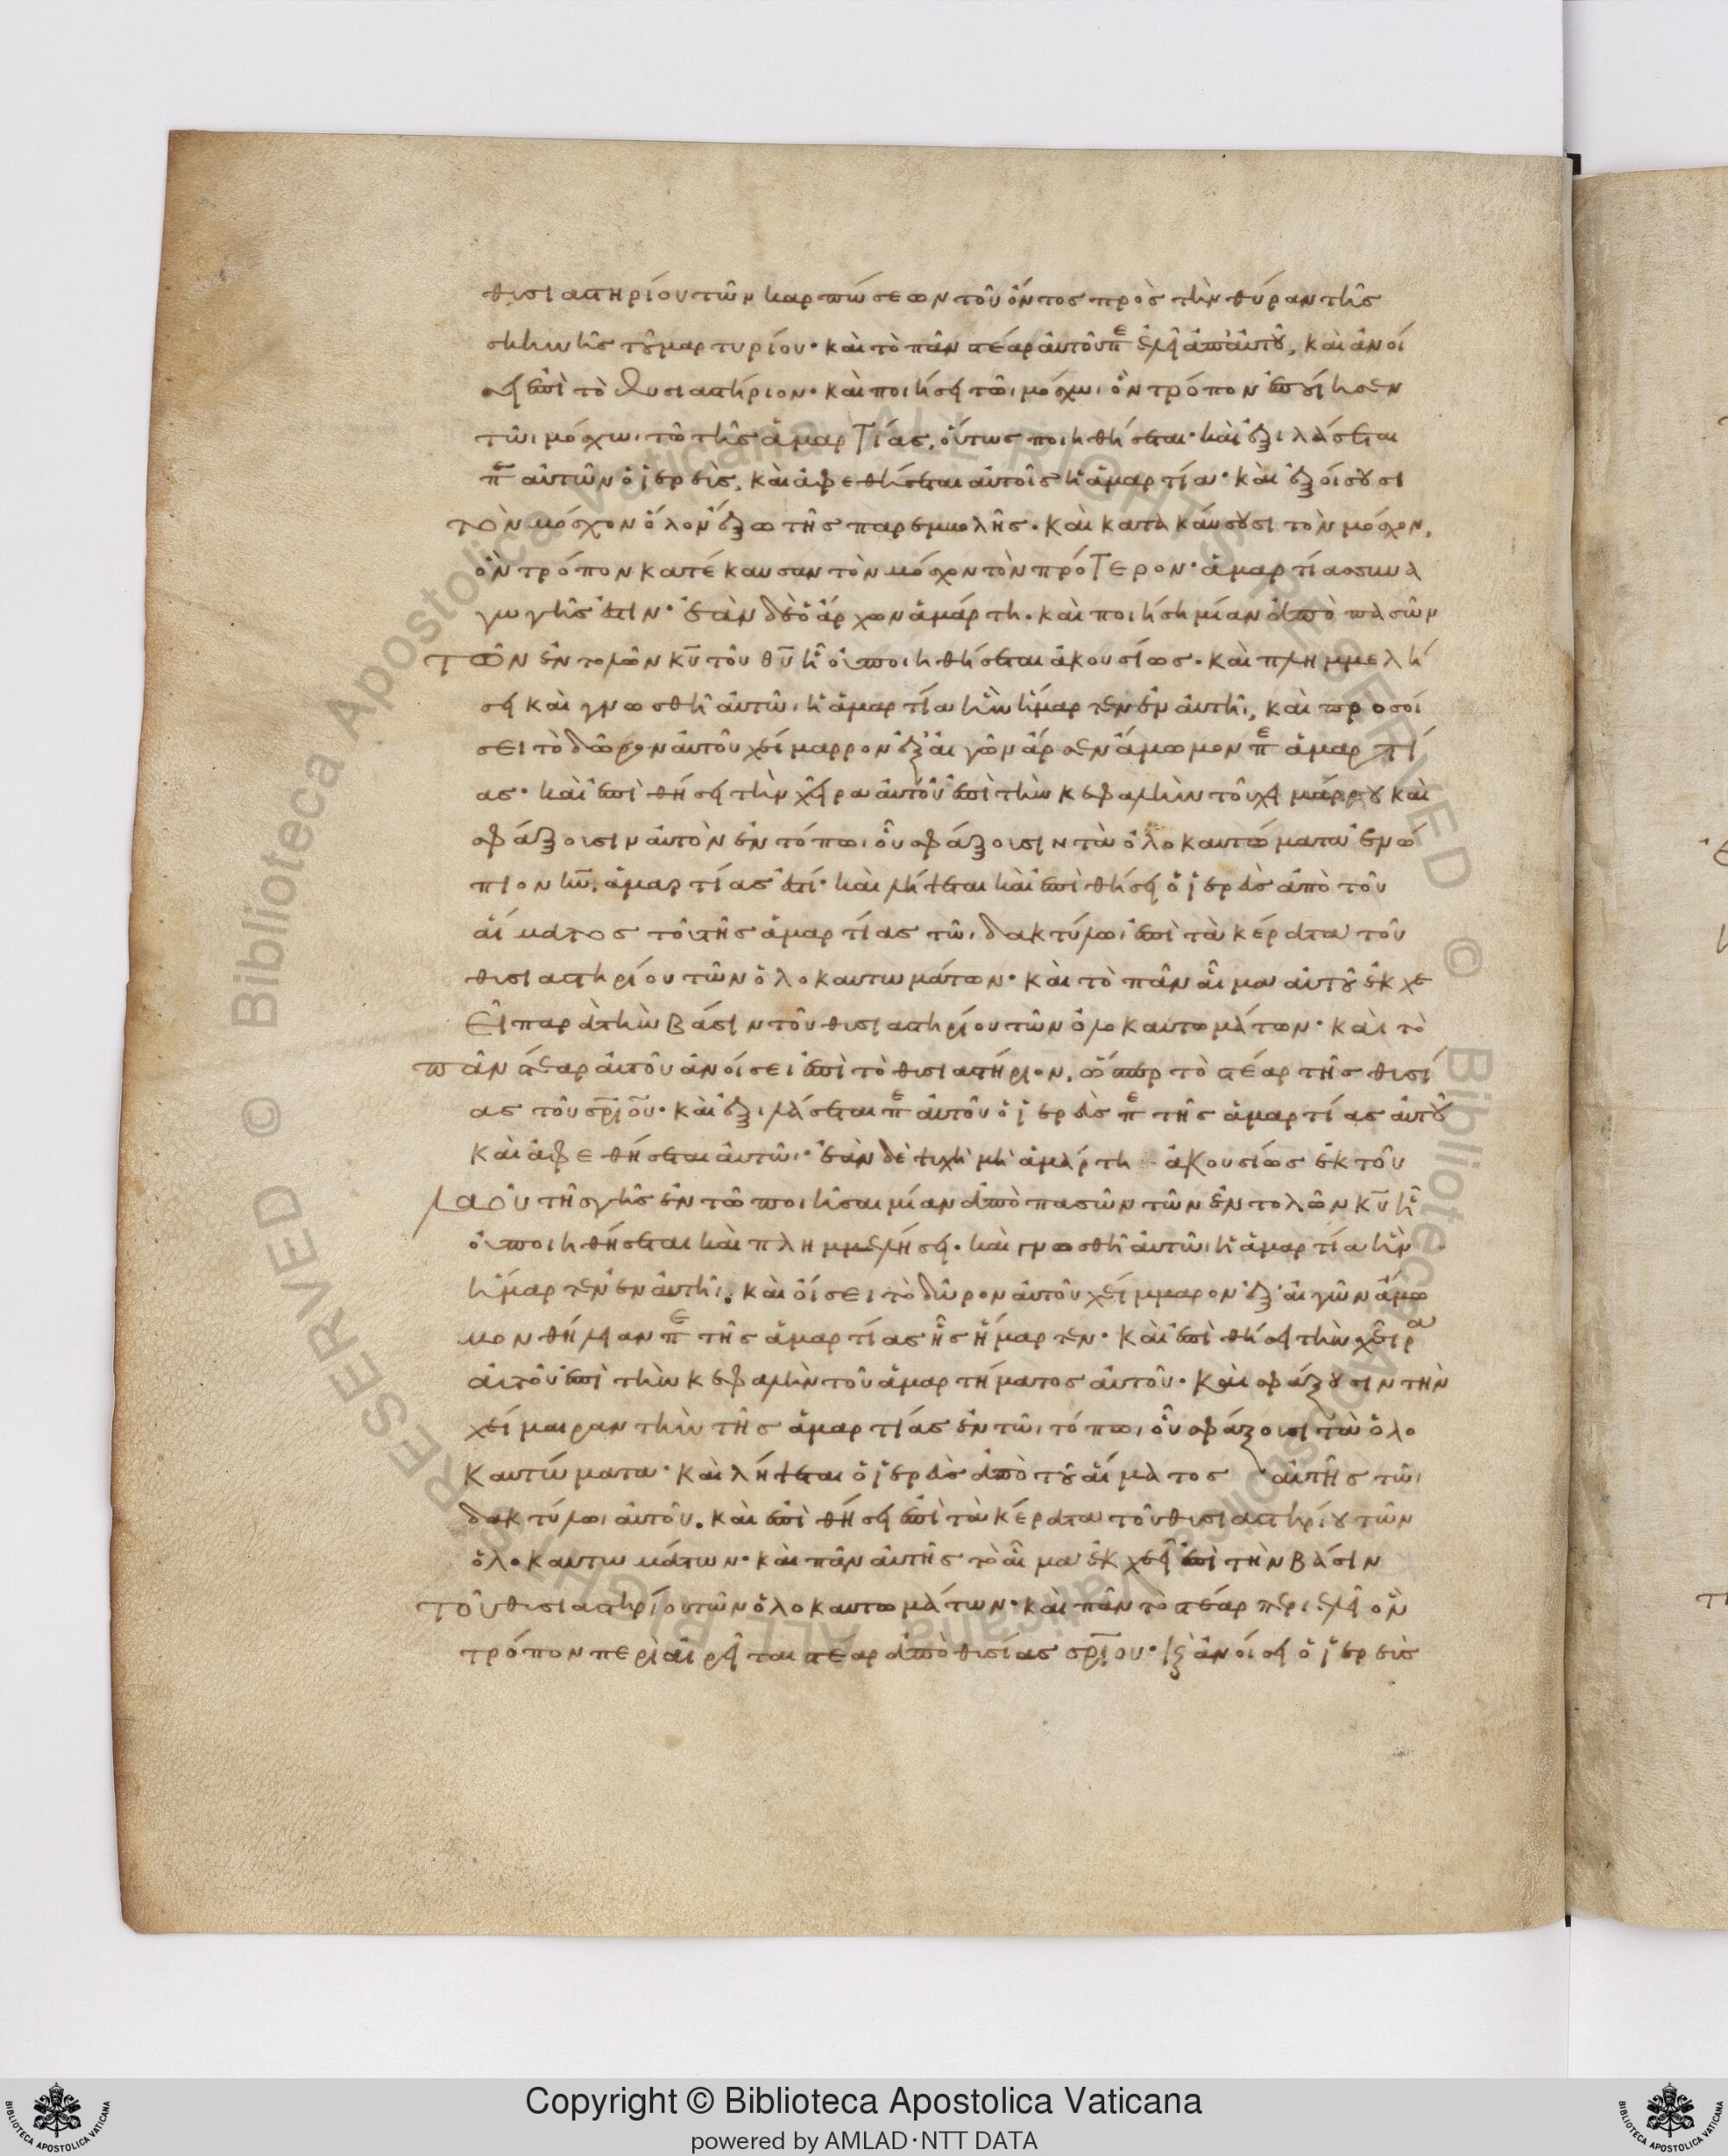 θυσιαστηρίου τῶν καρπώσεων τοῦ ὄντος πρὸς τὴν θύραν τῆς
σκηνῆς τοῦ μαρτυρίου· καὶ τὸ πᾶν στέαρ αὐτοῦ πε ἑλεῖ ἀπ' αὐτοῦ, καὶ ἀνοί
σει ἐπὶ τὸ θυσιαστήριον· καὶ ποιήσει τῶι μόσχωι ὃν τρόπον ἐποίησεν
τῶι μόσχωι τῶ τῆς ἁμαρτίας, οὕτως ποιηθήσεται· καὶ ἐξιλάσεται
πε αὐτῶν ὁ ἱερεὺς, καὶ ἀφεθήσεται αὐτοῖς ἡ ἁμαρτία· καὶ ἐξοίσουσι
τὸν μόσχον ὅλον ἔξω τῆς παρεμβολῆς· καὶ κατακαύσουσι τὸν μόσχον,
ὃν τρόπον κατέκαυσαν τὸν μόσχον τὸν πρότερον· ἁμαρτία συνα
γωγῆς ἐστιν· ἐὰν δὲ ὁ ἄρχων ἁμάρτη· καὶ ποιήση μίαν ἀπὸ πασῶν
τῶν ἐντολῶν κυ τοῦ θυ ἣ οὐ ποιηθήσεται ἀκουσίως· καὶ πλημμελή
σει καὶ γνωσθῆ αὐτῶι ἡ ἁμαρτία ἣν ἥμαρτεν ἐν αὐτῆι, καὶ προσοί
σει τὸ δῶρον αὐτοῦ χείμαρρον ἐξ αἰγῶν ἄρσεν ἄμωμον πε ἁμαρτί
ας· καὶ ἐπιθήσει τὴν χεῖρα αὐτοῦ ἐπὶ τὴν κεφαλὴν τοῦ χειμάρρου καὶ
σφάξουσιν αὐτὸν ἐν τόπωι οὗ σφάζουσιν τὰ ὁλοκαυτώματα ἐνώ
πιον κυ, ἁμαρτίας ἐστί· καὶ λήψεται καὶ ἐπιθήσει ὁ ἱερεὺς ἀπὸ τοῦ
αἵματος τοῦ τῆς ἁμαρτίας τῶι δακτύλωι ἐπὶ τὰ κέρατα τοῦ
θυσιαστηρίου τῶν ὁλοκαυτωμάτων· καὶ τὸ πᾶν αἷμα αὐτοῦ ἐκχε
εῖ παρὰ τὴν βάσιν τοῦ θυσιαστηρίου τῶν ὁλοκαυτωμάτων· καὶ τὸ
πᾶν στέαρ αὐτοῦ ἀνοίσει ἐπὶ τὸ θυσιαστήριον, ὥσπερ τὸ στέαρ τῆς θυσί
ας τοῦ σριου· καὶ ἐξιλάσεται πε αὐτοῦ ὁ ἱερεὺς πε τῆς ἁμαρτίας αὐτοῦ
καὶ ἀφεθήσεται αὐτῶι· ἐὰν δὲ ψυχὴ μὴ ἁμάρτη ἀκουσίως ἐκ τοῦ
λαοῦ τῆς γῆς ἐν τῶ ποιῆσαι μίαν ἀπὸ πασῶν τῶν ἐντολῶν κυ ἣ
οὐ ποιηθήσεται καὶ πλημμελήσει· καὶ γνωσθῆ αὐτῶι ἡ ἁμαρτία ἣν
ἥμαρτεν ἐν αὐτῆι· καὶ οἴσει τὸ δῶρον αὐτοῦ χείμμαρον ἐξ αἰγῶν ἄμω
μον θήλειαν πε τῆς ἁμαρτίας ἧς ἥμαρτεν· καὶ ἐπιθήσει τὴν χεῖρα
αὐτοῦ ἐπὶ τὴν κεφαλὴν τοῦ ἁμαρτήματος αὐτοῦ· καὶ σφάξουσιν τὴν
χείμαιραν τὴν τῆς ἁμαρτίας ἐν τῶι τόπωι οὗ σφάζουσι τὰ ὁλο
καυτώματα· καὶ λήψεται ὁ ἱερεὺς ἀπὸ τοῦ αἵματος αὐτῆς τῶι
δακτύλωι αὐτοῦ· καὶ ἐπιθήσει ἐπὶ τὰ κέρατα τοῦ θυσιαστηρίου τῶν
ὁλοκαυτωμάτων· καὶ πᾶν αὐτῆς τὸ αἷμα ἐκχεεῖ ἐπὶ τὴν βάσιν
τοῦ θυσιαστηρίου τῶν ὁλοκαυτωμάτων· καὶ πᾶν τὸ στέαρ περιελεῖ ὃν
τρόπον περιαιρεῖται στέαρ ἀπὸ θυσίας σριου· κ ἀνοίσει ὁ ἱερεὺς
© Biblioteca Apostolica Vaticana ALL RIGHTS RESERVED
© Biblioteca Apostolica Vaticana ALL RIGHTS RESERVED
Copyright © Biblioteca Apostolica Vaticana
powered by AMLAD·NTT DATA
BIBLIOTECA APOSTOLICA VATICANA
BIBLIOTECA APOSTOLICA VATICANA